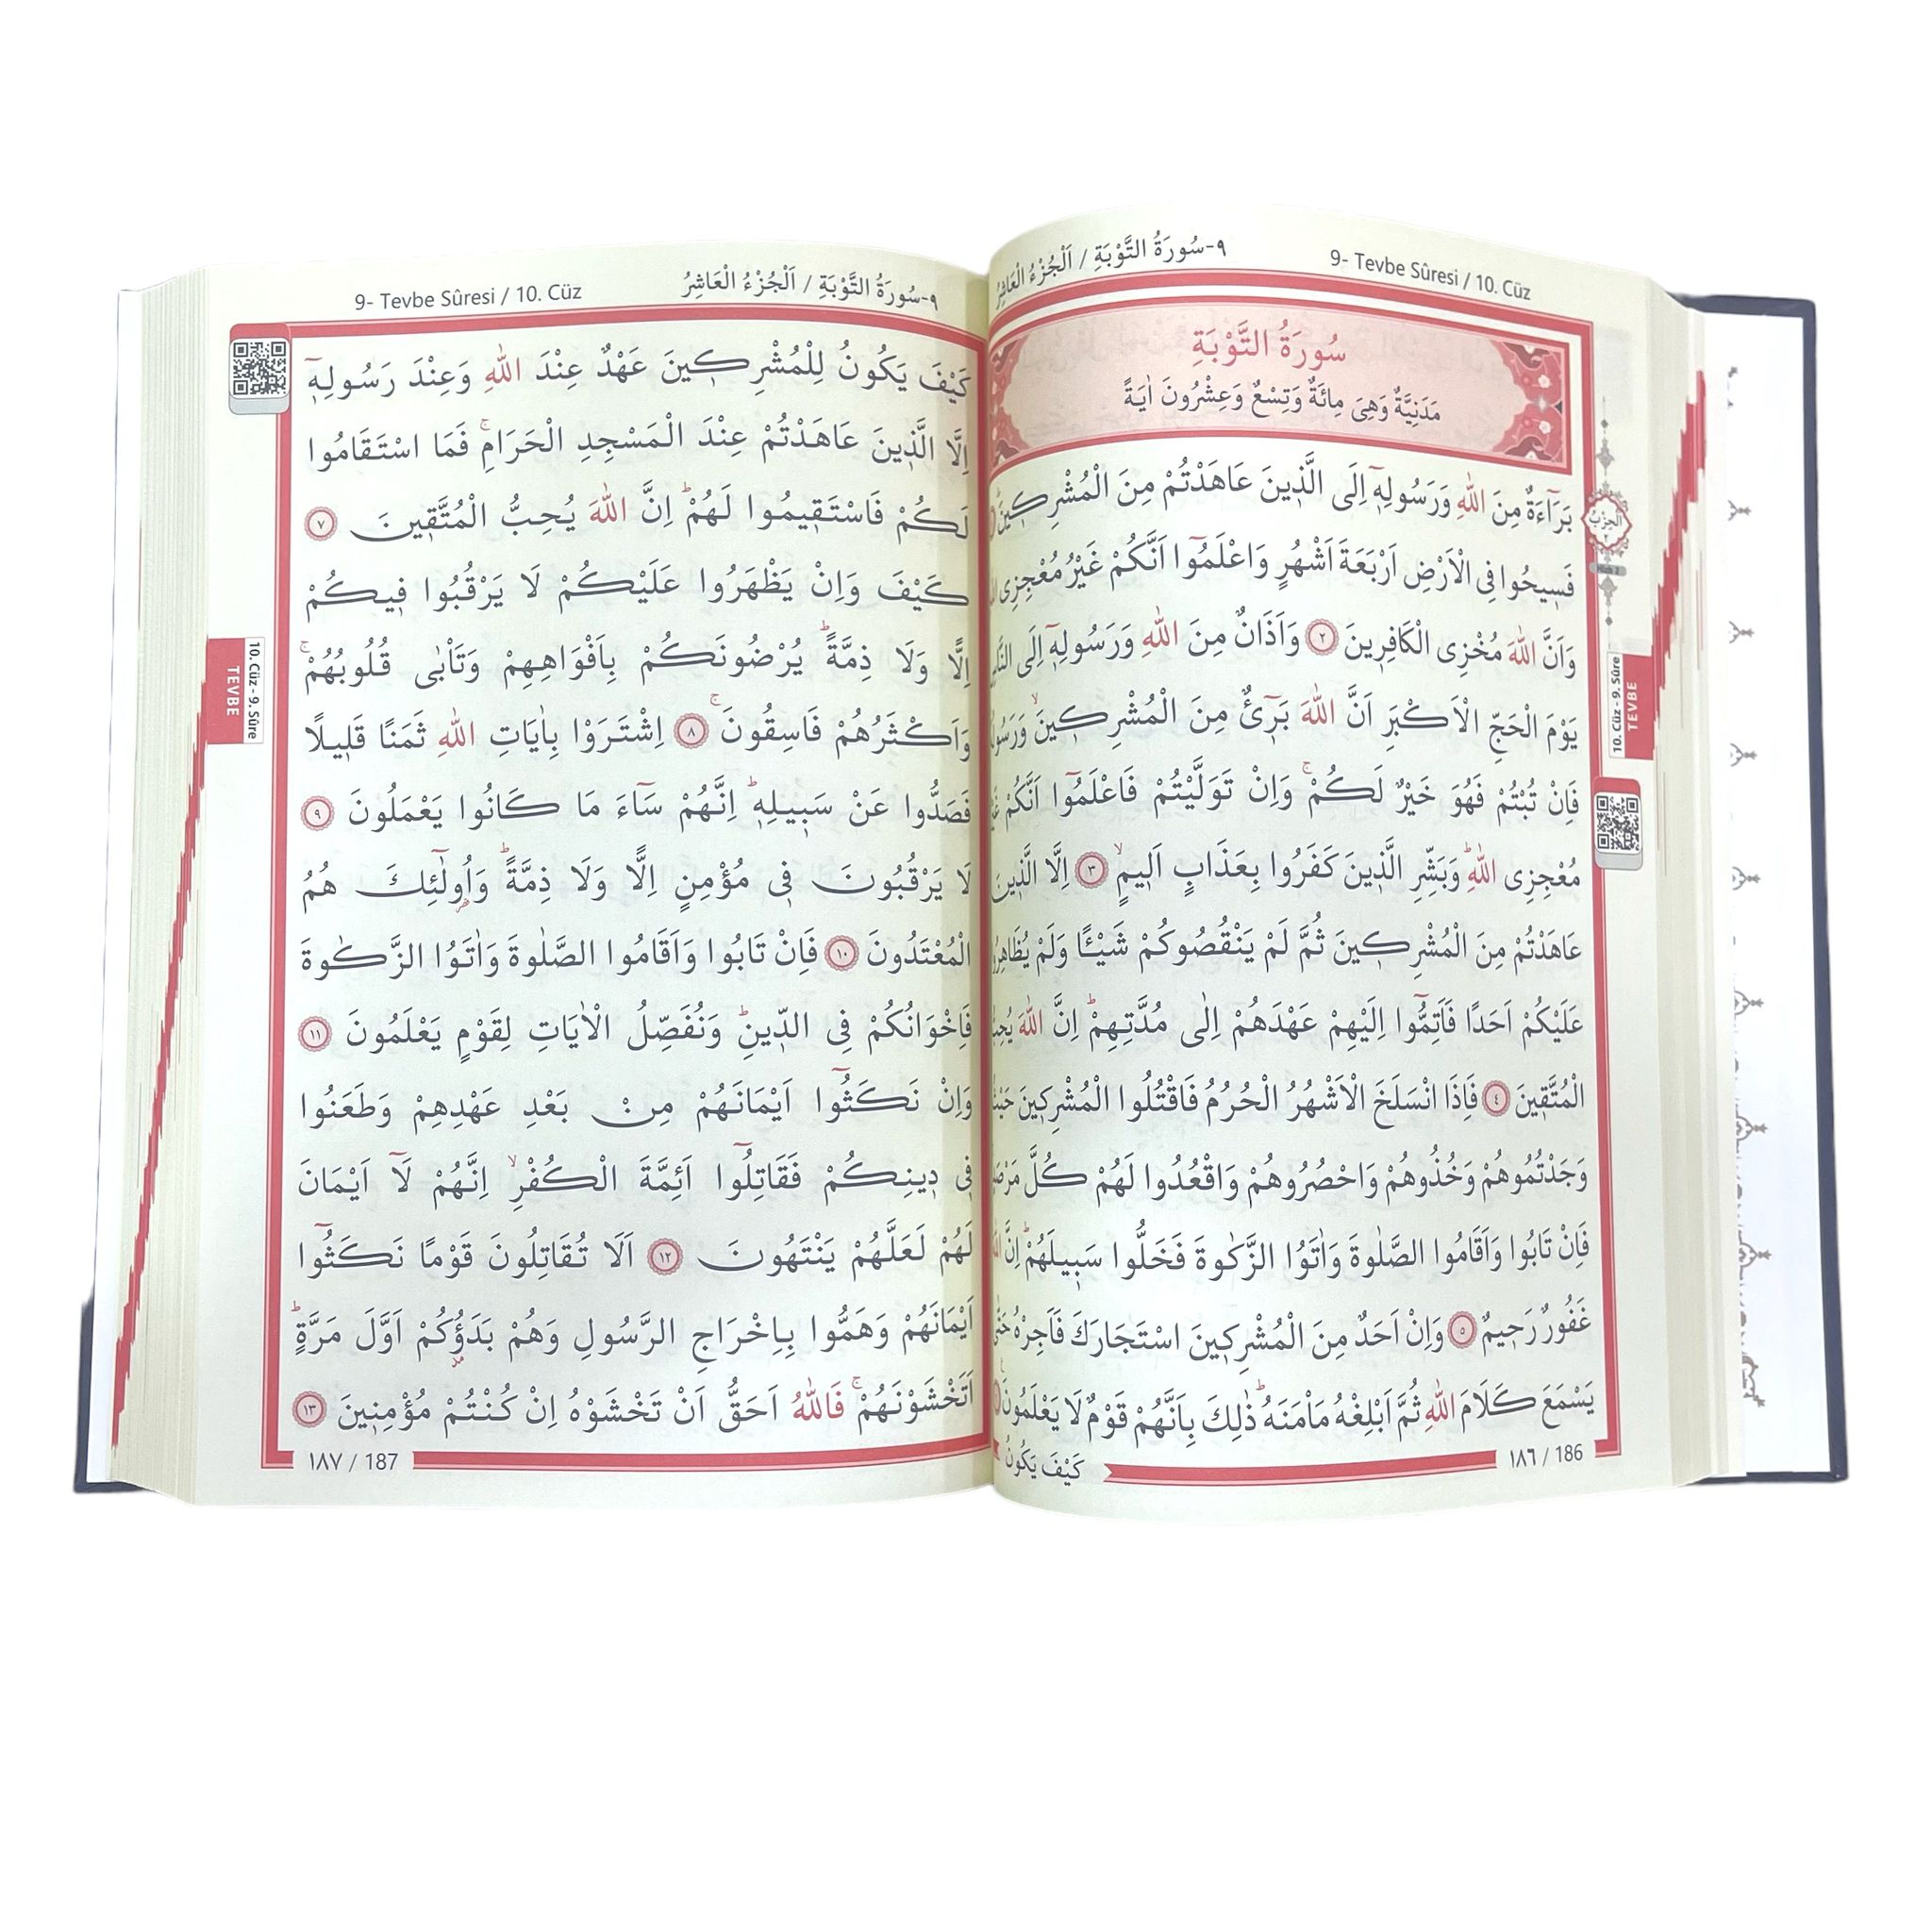 ٩-سُورَةُ التَّوْبَةِ / اَلْجُزْءُ الْعَاشِرُ
9- Tevbe Sûresi / 10. Cüz
سُورَةُ التَّوْبَةِ
مَدَنِيَّةٌ وَهِىَ مِائَةٌ وَتِسْعٌ وَعِشْرُونَ اٰيَةً
بَرَٓاءَةٌ مِنَ اللّٰهِ وَرَسُولِه۪ٓ اِلَى الَّذ۪ينَ عَاهَدْتُمْ مِنَ الْمُشْرِك۪ينَ
فَس۪يحُوا فِى الْاَرْضِ اَرْبَعَةَ اَشْهُرٍ وَاعْلَمُٓوا اَنَّكُمْ غَيْرُ مُعْجِزِى
وَاَنَّ اللّٰهَ مُخْزِى الْكَافِر۪ينَ ﴿٢﴾ وَاَذَانٌ مِنَ اللّٰهِ وَرَسُولِه۪ٓ اِلَى
يَوْمَ الْحَجِّ الْاَكْبَرِ اَنَّ اللّٰهَ بَر۪ٓىءٌ مِنَ الْمُشْرِك۪ينَۙ
فَاِنْ تُبْتُمْ فَهُوَ خَيْرٌ لَكُمْۚ وَاِنْ تَوَلَّيْتُمْ فَاعْلَمُٓوا اَنَّكُمْ
مُعْجِزِى اللّٰهِۜ وَبَشِّرِ الَّذ۪ينَ كَفَرُوا بِعَذَابٍ اَل۪يمٍۙ ﴿٣﴾ اِلَّا الَّذ۪ينَ
عَاهَدْتُمْ مِنَ الْمُشْرِك۪ينَ ثُمَّ لَمْ يَنْقُصُوكُمْ شَيْـًٔا وَلَمْ
عَلَيْكُمْ اَحَدًا فَاَتِمُّٓوا اِلَيْهِمْ عَهْدَهُمْ اِلٰى مُدَّتِهِمْۜ اِنَّ اللّٰهَ
الْمُتَّق۪ينَ ﴿٤﴾ فَاِذَا انْسَلَخَ الْاَشْهُرُ الْحُرُمُ فَاقْتُلُوا الْمُشْرِك۪ينَ
وَجَدْتُمُوهُمْ وَخُذُوهُمْ وَاحْصُرُوهُمْ وَاقْعُدُوا لَهُمْ كُلَّ
فَاِنْ تَابُوا وَاَقَامُوا الصَّلٰوةَ وَاٰتَوُا الزَّكٰوةَ فَخَلُّوا سَب۪يلَهُمْۜ اِنَّ
غَفُورٌ رَح۪يمٌ ﴿٥﴾ وَاِنْ اَحَدٌ مِنَ الْمُشْرِك۪ينَ اسْتَجَارَكَ فَاَجِرْهُ
يَسْمَعَ كَلَامَ اللّٰهِ ثُمَّ اَبْلِغْهُ مَاْمَنَهُۜ ذٰلِكَ بِاَنَّهُمْ قَوْمٌ لَا يَعْلَمُونَ
١٨٦ / 186
كَيْفَ يَكُونُ
الْحِزْبُ
10. Cüz - 9. Sûre
TEVBE
٩-سُورَةُ التَّوْبَةِ / اَلْجُزْءُ الْعَاشِرُ
9- Tevbe Sûresi / 10. Cüz
كَيْفَ يَكُونُ لِلْمُشْرِك۪ينَ عَهْدٌ عِنْدَ اللّٰهِ وَعِنْدَ رَسُولِه۪ٓ
اِلَّا الَّذ۪ينَ عَاهَدْتُمْ عِنْدَ الْمَسْجِدِ الْحَرَامِۚ فَمَا اسْتَقَامُوا
لَكُمْ فَاسْتَق۪يمُوا لَهُمْۜ اِنَّ اللّٰهَ يُحِبُّ الْمُتَّق۪ينَ ﴿٧﴾
كَيْفَ وَاِنْ يَظْهَرُوا عَلَيْكُمْ لَا يَرْقُبُوا ف۪يكُمْ
اِلًّا وَلَا ذِمَّةًۜ يُرْضُونَكُمْ بِاَفْوَاهِهِمْ وَتَاْبٰى قُلُوبُهُمْۚ
وَاَكْثَرُهُمْ فَاسِقُونَۚ ﴿٨﴾ اِشْتَرَوْا بِاٰيَاتِ اللّٰهِ ثَمَنًا قَل۪يلًا
فَصَدُّوا عَنْ سَب۪يلِه۪ۜ اِنَّهُمْ سَٓاءَ مَا كَانُوا يَعْمَلُونَ ﴿٩﴾
لَا يَرْقُبُونَ ف۪ى مُؤْمِنٍ اِلًّا وَلَا ذِمَّةًۜ وَاُو۬لٰٓئِكَ هُمُ
الْمُعْتَدُونَ ﴿١٠﴾ فَاِنْ تَابُوا وَاَقَامُوا الصَّلٰوةَ وَاٰتَوُا الزَّكٰوةَ
فَاِخْوَانُكُمْ فِى الدّ۪ينِۜ وَنُفَصِّلُ الْاٰيَاتِ لِقَوْمٍ يَعْلَمُونَ ﴿١١﴾
وَاِنْ نَكَثُٓوا اَيْمَانَهُمْ مِنْ بَعْدِ عَهْدِهِمْ وَطَعَنُوا
ف۪ى د۪ينِكُمْ فَقَاتِلُٓوا اَئِمَّةَ الْكُفْرِۙ اِنَّهُمْ لَٓا اَيْمَانَ
لَهُمْ لَعَلَّهُمْ يَنْتَهُونَ ﴿١٢﴾ اَلَا تُقَاتِلُونَ قَوْمًا نَكَثُٓوا
اَيْمَانَهُمْ وَهَمُّوا بِاِخْرَاجِ الرَّسُولِ وَهُمْ بَدَؤُ۫كُمْ اَوَّلَ مَرَّةٍۜ
اَتَخْشَوْنَهُمْۚ فَاللّٰهُ اَحَقُّ اَنْ تَخْشَوْهُ اِنْ كُنْتُمْ مُؤْمِن۪ينَ ﴿١٣﴾
١٨٧ / 187
10. Cüz - 9. Sûre
TEVBE